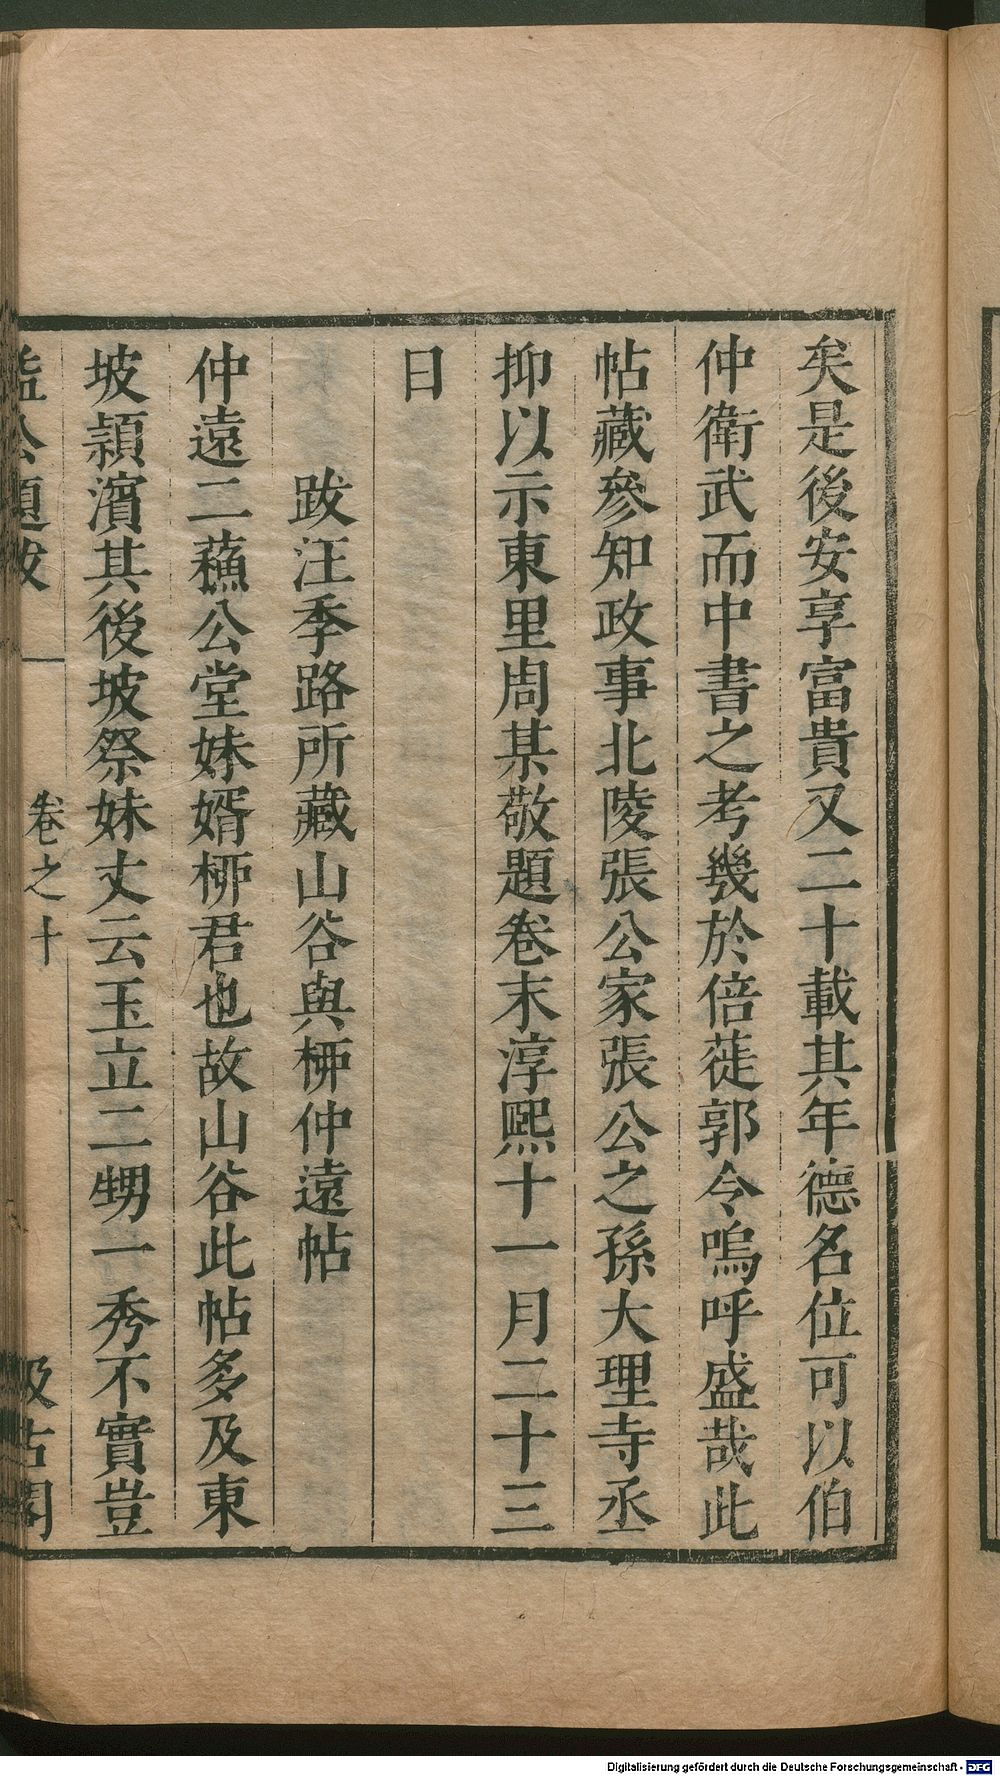 矣是後安享富貴又二十載其年德名位可以伯
仲衛武而中書之考幾於倍蓰郭令嗚呼盛哉此
帖藏參知政事北陵張公家張公之孫大理寺丞
抑以示東里周某敬題卷末淳熙十一月二十三
日
跋汪季路所藏山谷與栁仲遠帖
仲遠二蘓公堂妹婿栁君也故山谷此帖多及東
坡頴濱其後坡祭妹丈云玉立二甥一秀不實豈
益公題跋 卷之十 汲古閣
Digitalisierung gefördert durch die Deutsche Forschungsgemeinschaft - DFG